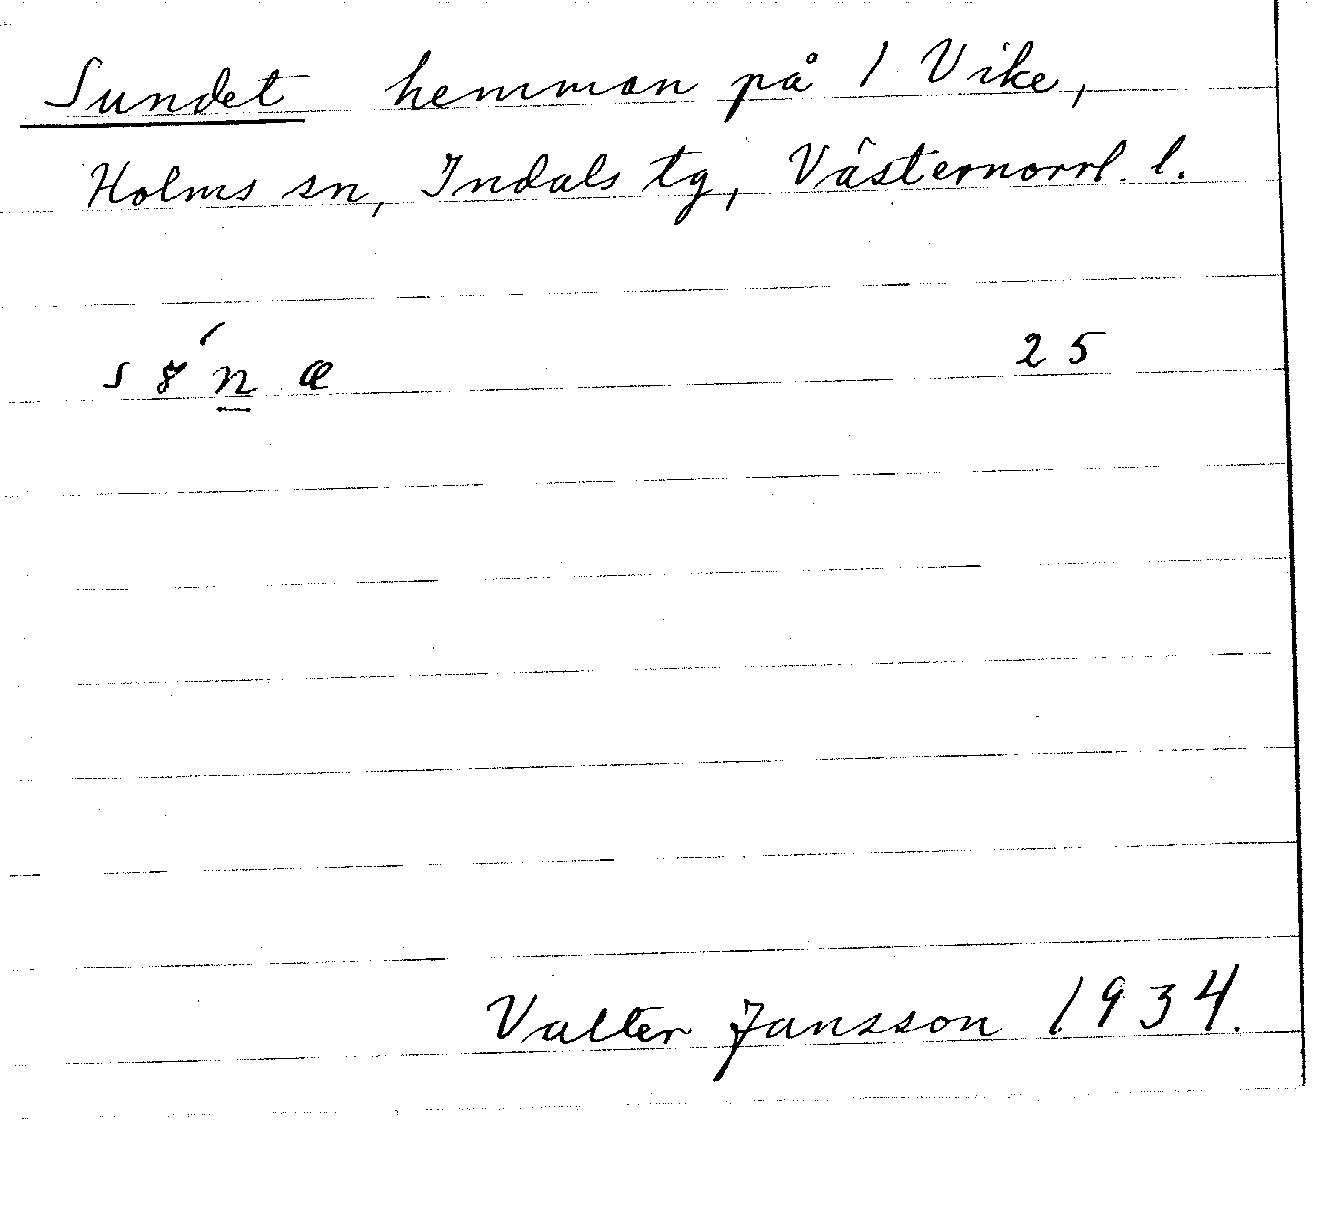 Sundet hemman på 1 Vike,
Holms sn, Indals tg, Västernorrl. l.
25
Valter Jansson 1934.